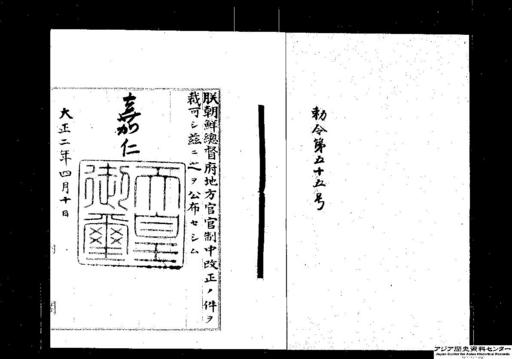 勅令第五十五号
朕朝鮮總督府地方官官制中改正ノ件ヲ
裁可シ茲ニ之ヲ公布セシム
嘉仁
天皇
御璽
大正二年四月十日
アジア歴史資料センター
Japan Center for Asian Historical Records